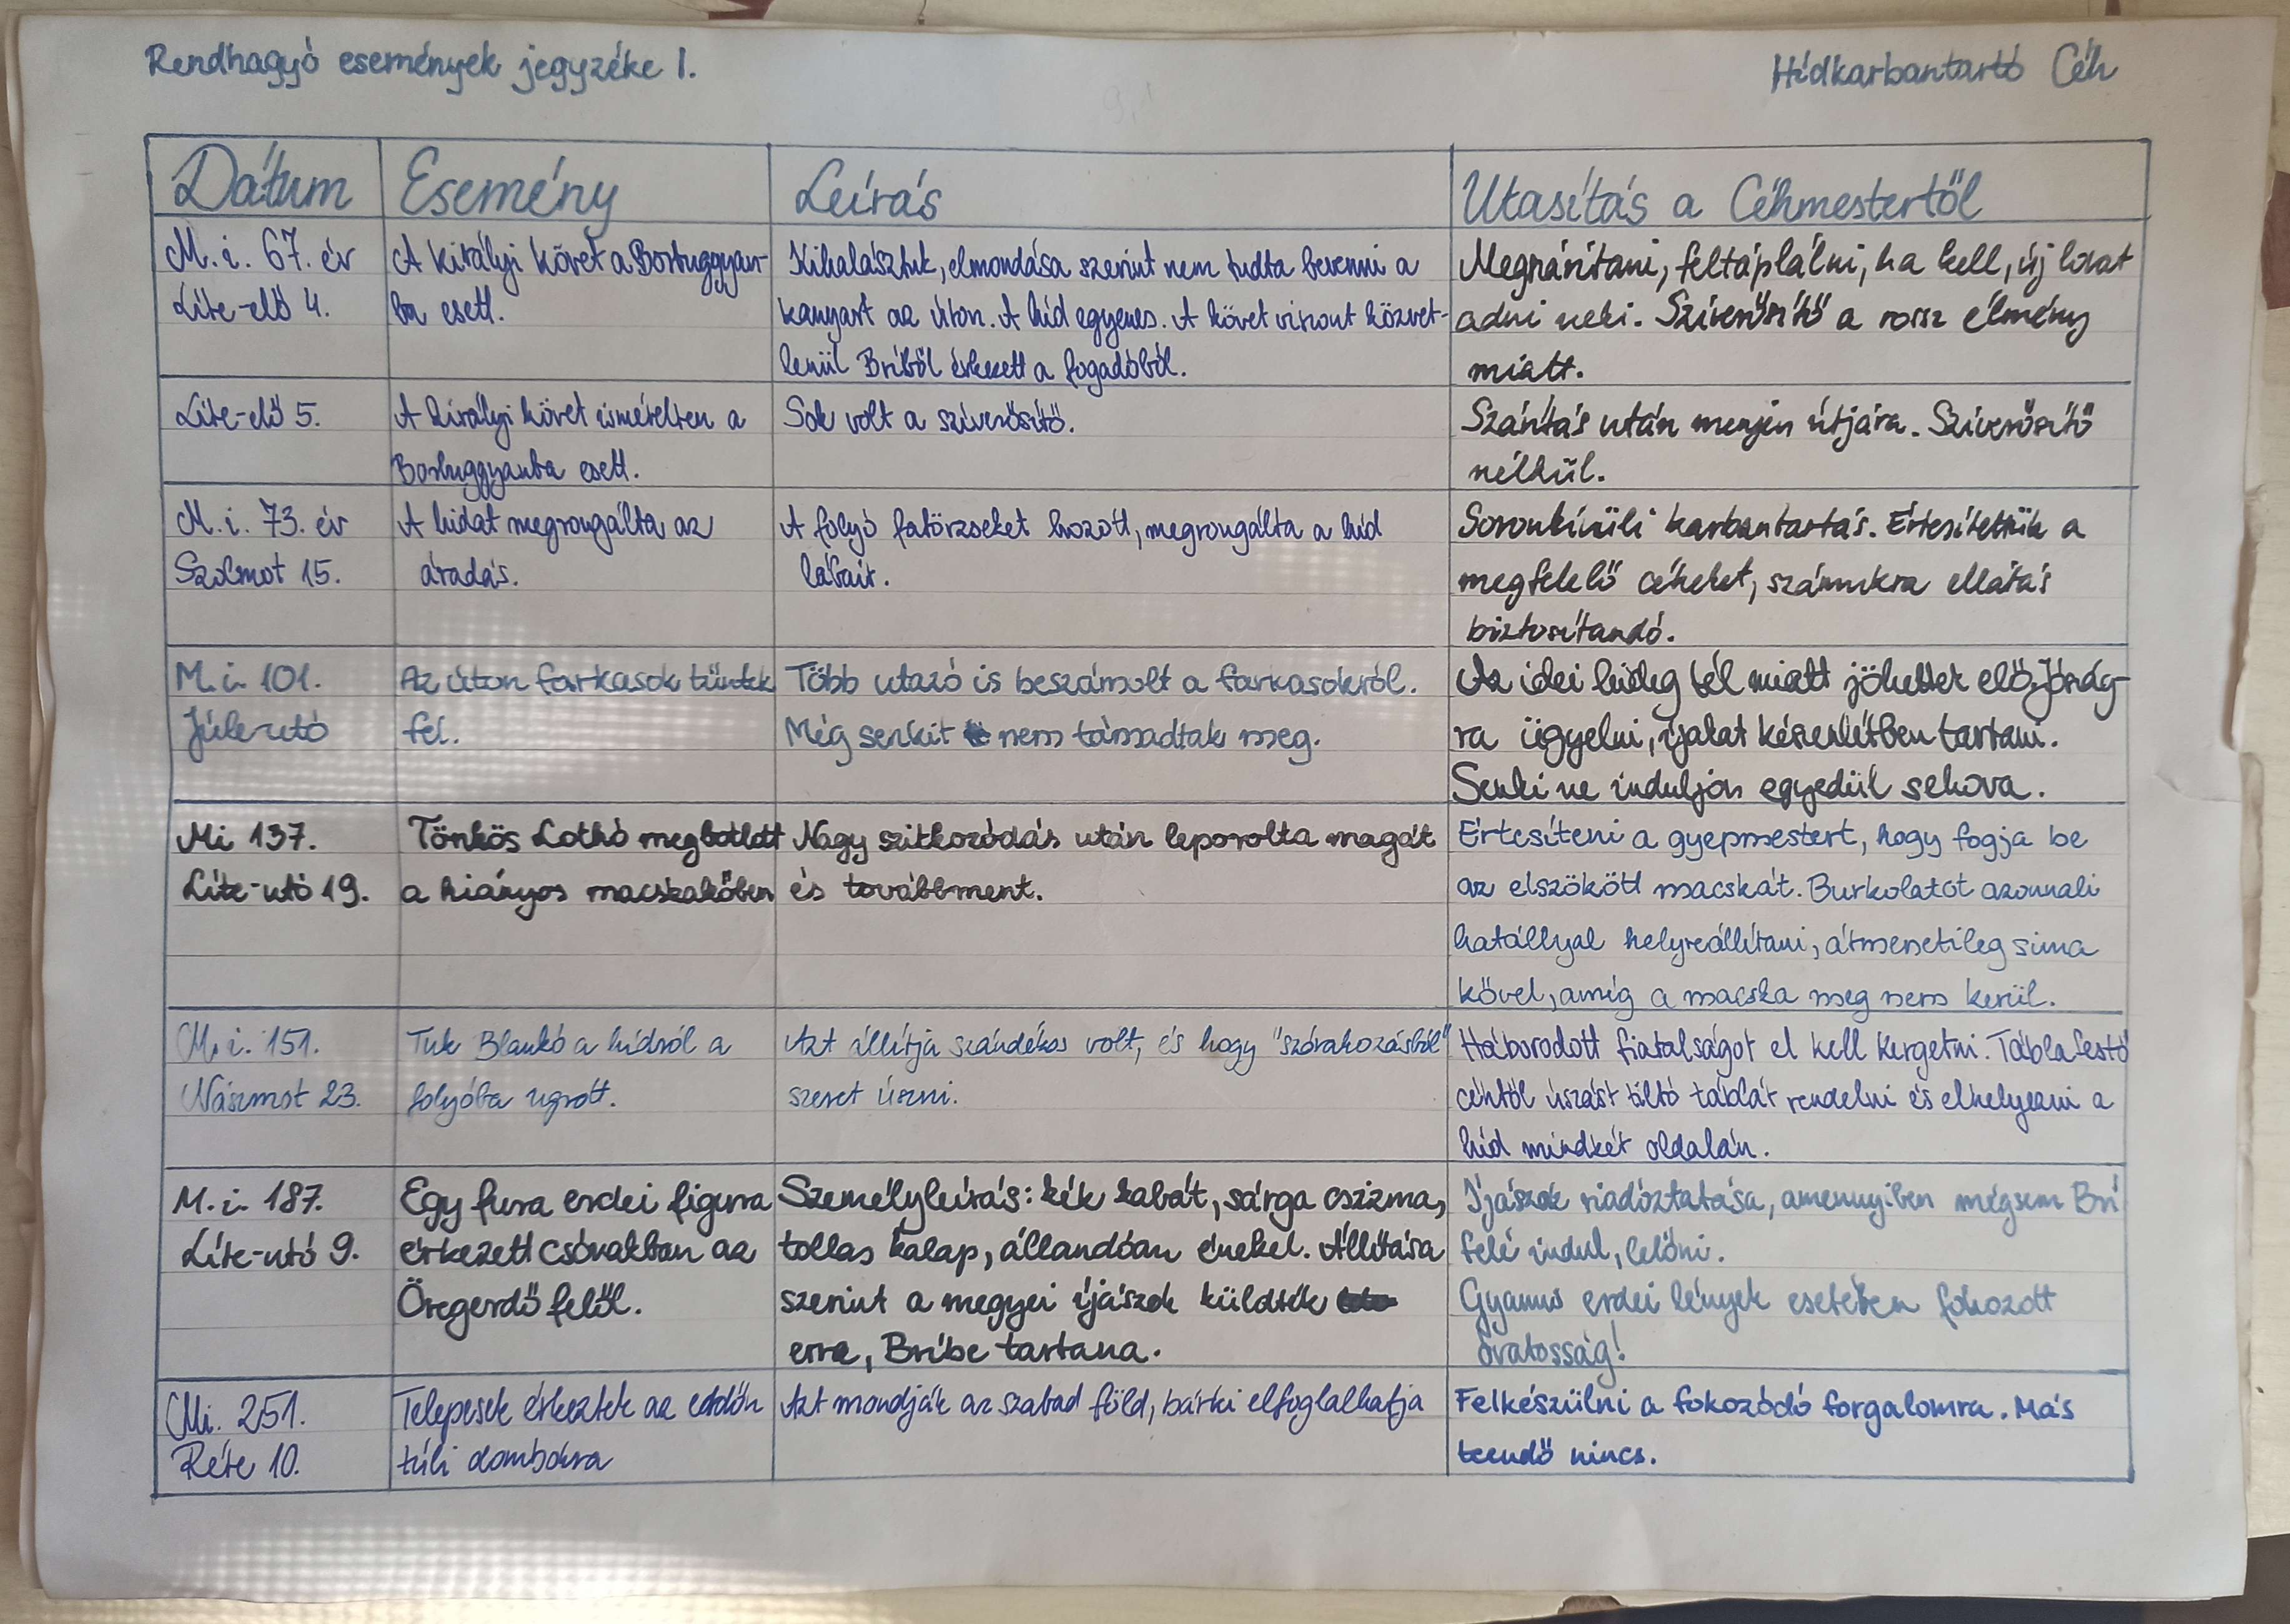 Rendhagyó események jegyzéke I.
Hídkarbantartó Céh
Dátum
Esemény
Leírás
Utasítás a Céhmestertől
M. i. 67. év
Lite-elő 4.
A királyi követ a Borbuggyan-
ba esett.
Kihalásztuk, elmondása szerint nem tudta bevenni a
kanyart az úton. A híd egyenes. A követ viszont közvet-
lenül Bríből érkezett a fogadóból.
Megszárítani, feltáplálni, ha kell, új lovat
adni neki. Szíverősítő a rossz élmény
miatt.
Lite-elő 5.
A királyi követ ismételten a
Borbuggyanba esett.
Sok volt a szíverősítő.
Szárítás után menjen útjára. Szíverősítő
nélkül.
M. i. 73. év
Szolmot 15.
A hidat megrongálta az
áradás.
A folyó fatörzseket hozott, megrongálta a híd
lábait.
Soronkívüli karbantartás. Értesítettük a
megfelelő céheket, számukra ellátás
biztosítandó.
M. i. 101.
Júle-utó
Az úton farkasok tűntek
fel.
Több utazó is beszámolt a farkasokról.
Még senkit nem támadtak meg.
Az idei hideg tél miatt jöhettek elő. Jószág-
ra ügyelni, íjakat készenlétben tartani.
Senki ne induljon egyedül sehova.
M i 137.
Lite-utó 19.
Tönkös Lothó megbotlott
a hiányos macskakőben
Nagy szitkozódás után leporolta magát
és továbbment.
Értesíteni a gyepmestert, hogy fogja be
az elszökött macskát. Burkolatot azonnali
hatállyal helyreállítani, átmenetileg sima
kővel, amíg a macska meg nem kerül.
M. i. 151.
Wászmot 23.
Tuk Blankó a hídról a
folyóba ugrott.
Azt állítja szándékos volt, és hogy "szórakozásból"
szeret úszni.
Háborodott fiatalságot el kell kergetni. Táblafestő
céhtől úszást tiltó táblát rendelni és elhelyezni a
híd mindkét oldalán.
M. i. 187.
Lite-utó 9.
Egy fura erdei figura
érkezett csónakban az
Öregerdő felől.
Személyleírás: kék kabát, sárga csizma,
tollas kalap, állandóan énekel. Állítása
szerint a megyei íjászok küldték
erre, Bríbe tartana.
Íjászok riadóztatása, amennyiben mégsem Brí
felé indul, lelőni.
Gyanús erdei lények esetében fokozott
óvatosság!
M i. 251.
Réte 10.
Telepesek érkeztek az erdőn
túli dombokra
Azt mondják az szabad föld, bárki elfoglalhatja
Felkészülni a fokozódó forgalomra. Más
teendő nincs.